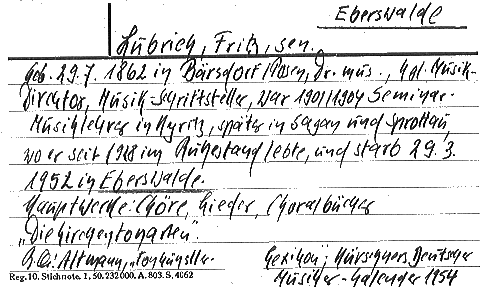 Eberswalde
Lubrich, Fritz, sen.
Geb. 29.7. 1862 in Bärsdorf/Posen, Dr. mus., Kgl. Musik-
Direktor, Musik-Schriftsteller, war 1901/1904 Seminar-
Musiklehrer in Kyritz, später in Sagan und Sprottau,
wo er seit 1928 im Ruhestand lebte, und starb 29.3.
1952 in Eberswalde.
Hauptwerke: Chöre, Lieder, Choralbücher
„Die Kirchentonarten".
Altmann, „Tonkünstler-
Lexikon"; Kürschners Deutscher
Musiker-Kalender 1954
Reg. 10. Stichnote. 1, 50. 232 000. A. 803. S. 4062